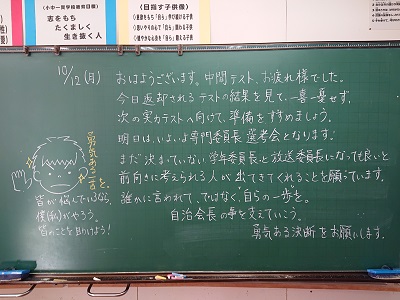 小中一貫学校教育目標
志をもち
たくましく
生き抜く人
【目指す子供像】
10/12(月)
おはようございます。中間テスト、お疲れ様でした。
今日返却されるテストの結果を見て、一喜一憂せず、
次の実力テストへ向けて、準備をすすめましょう。
明日は、いよいよ専門委員長選考会となります。
まだ決まっていない学年委員長と放送委員長になっても良いと
前向きに考えられる人が出てきてくれることを願っています。
誰かに言われて、ではなく、自らの一歩を。
自治会長の事を支えていこう。
勇気ある決断をお願いします。
勇気ある一言を。
皆が悩んでいるなら、
僕(私)がやろう。
皆のことを助けよう!